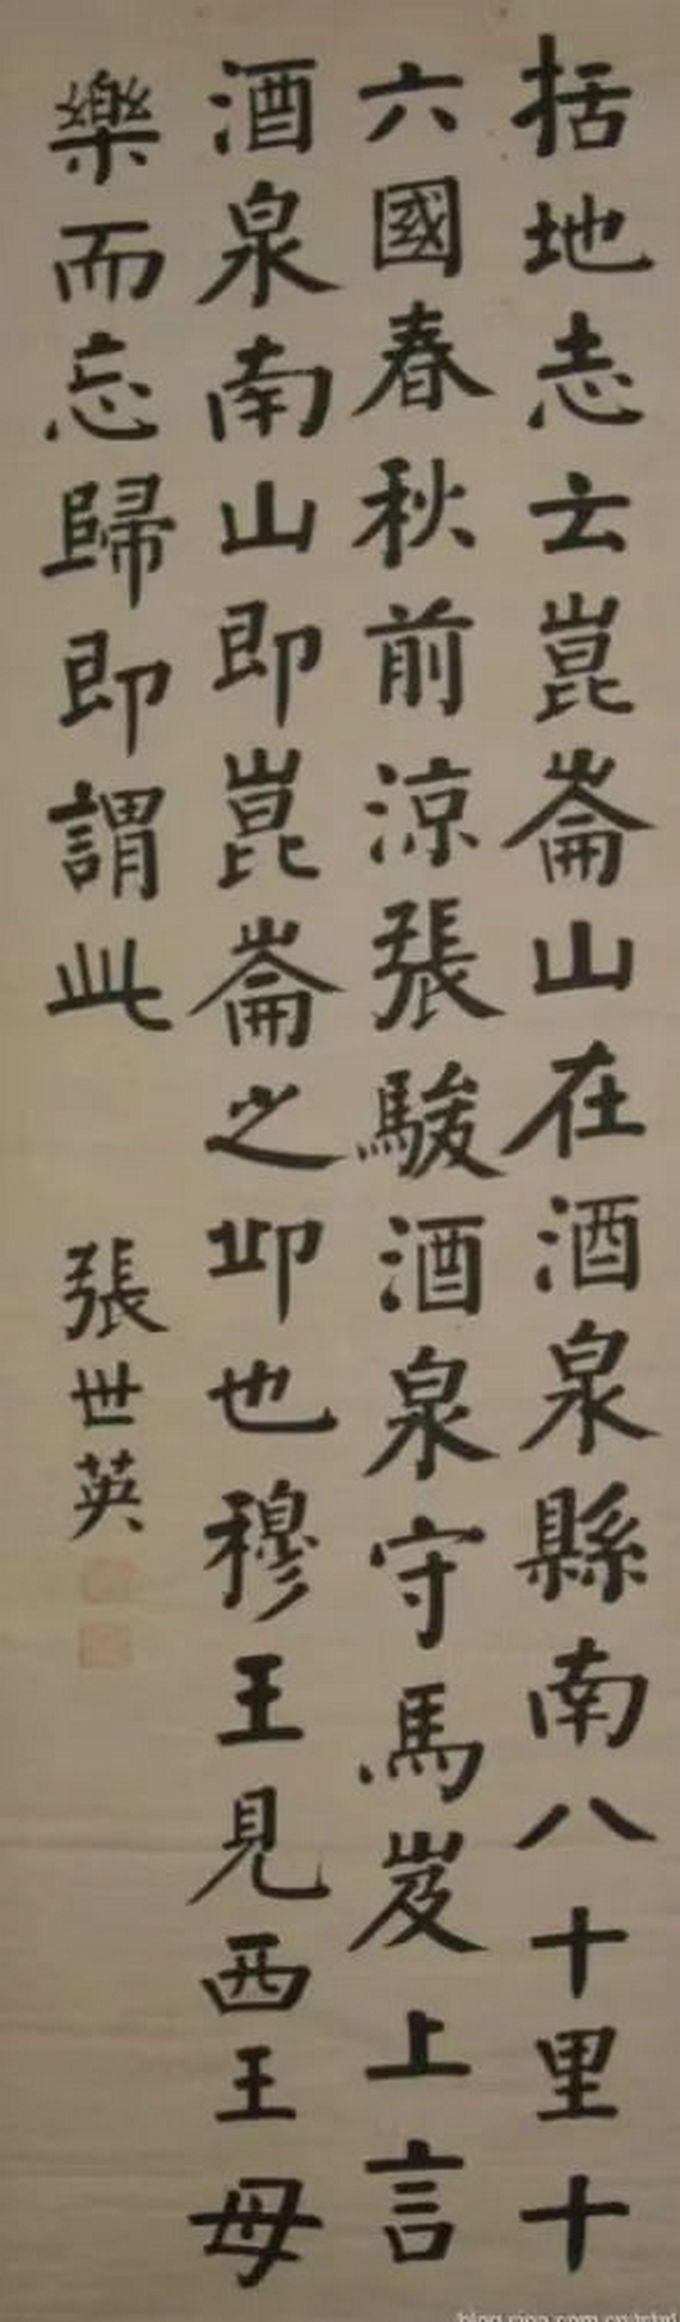 括地志云崑崙山在酒泉縣南八十里十
六國春秋前涼張駿酒泉守馬岌上言
酒泉南山即崑崙之丠也穆王見西王母
樂而忘歸即謂此
張世英